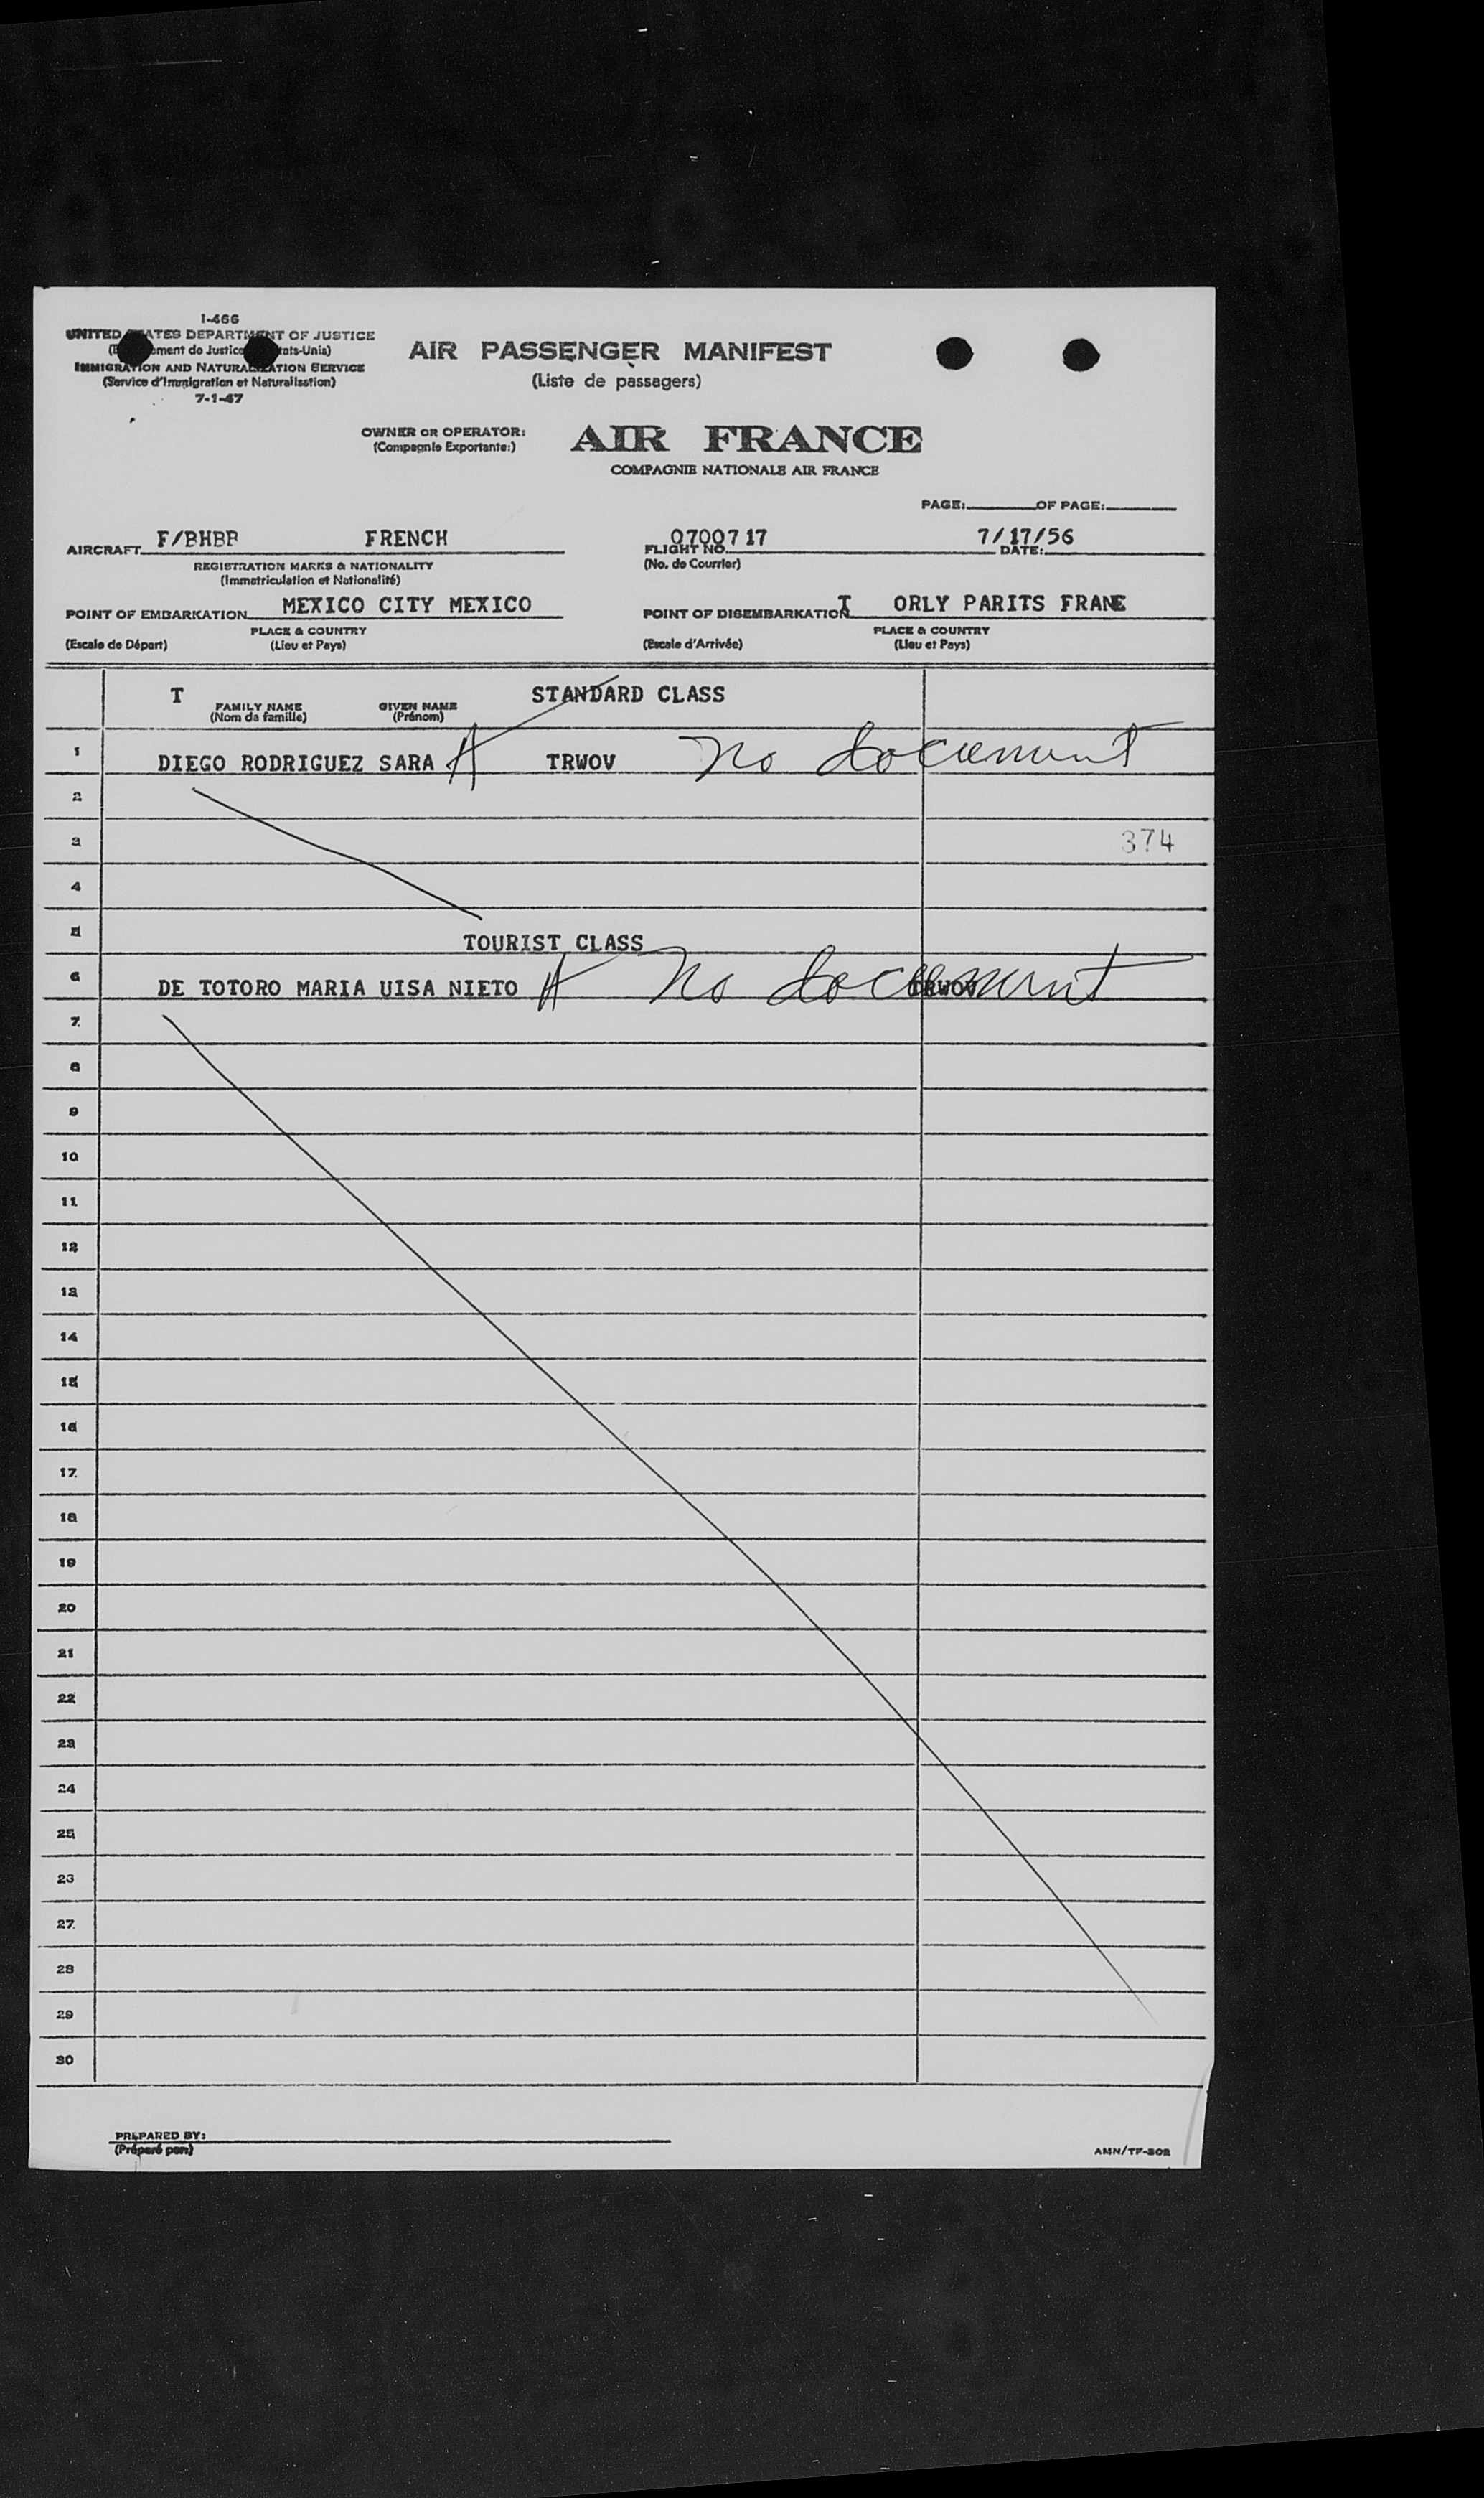 I-466
UNITED STATES DEPARTMENT OF JUSTICE
ement de Justice tats-Unis)
IMMIGRATION AND NATURALIZATION SERVICE
(Service d'Immigration et Naturalisation)
7-1-47
AIR PASSENGER MANIFEST
(Liste de passagers)
OWNER OR OPERATOR:
(Compagnie Exportante:)
AIR FRANCE
COMPAGNIE NATIONALE AIR FRANCE
PAGE: OF PAGE:
AIRCRAFT F/BHBP FRENCH FLIGHT NO. 0700717 DATE: 7/17/56
REGISTRATION MARKS & NATIONALITY (No. de Courrier)
(Immatriculation et Nationalité)
POINT OF EMBARKATION MEXICO CITY MEXICO POINT OF DISEMBARKATION T ORLY PARITS FRANE
PLACE & COUNTRY PLACE & COUNTRY
(Escale de Départ) (Lieu et Pays) (Escale d'Arrivée) (Lieu et Pays)
T STANDARD CLASS
FAMILY NAME GIVEN NAME
(Nom de famille) (Prénom)
1 DIEGO RODRIGUEZ SARA A TRWOV No document
2
3 374
4
5 TOURIST CLASS
6 DE TOTORO MARIA UISA NIETO A No document TRWOV
7
8
9
10
11
12
13
14
15
16
17
18
19
20
21
22
23
24
25
26
27
28
29
30
PREPARED BY:
(Préparé par:)
AMN/TF-302